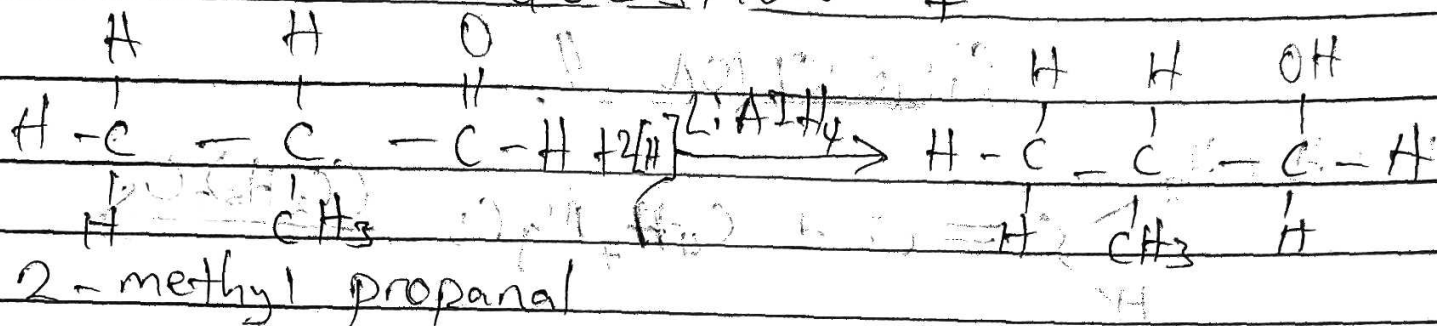 H H O H H OH
H - C - C - C - H + 2[H] LiAlH4 → H - C - C - C - H
H CH3 H CH3 H
2-methyl propanal